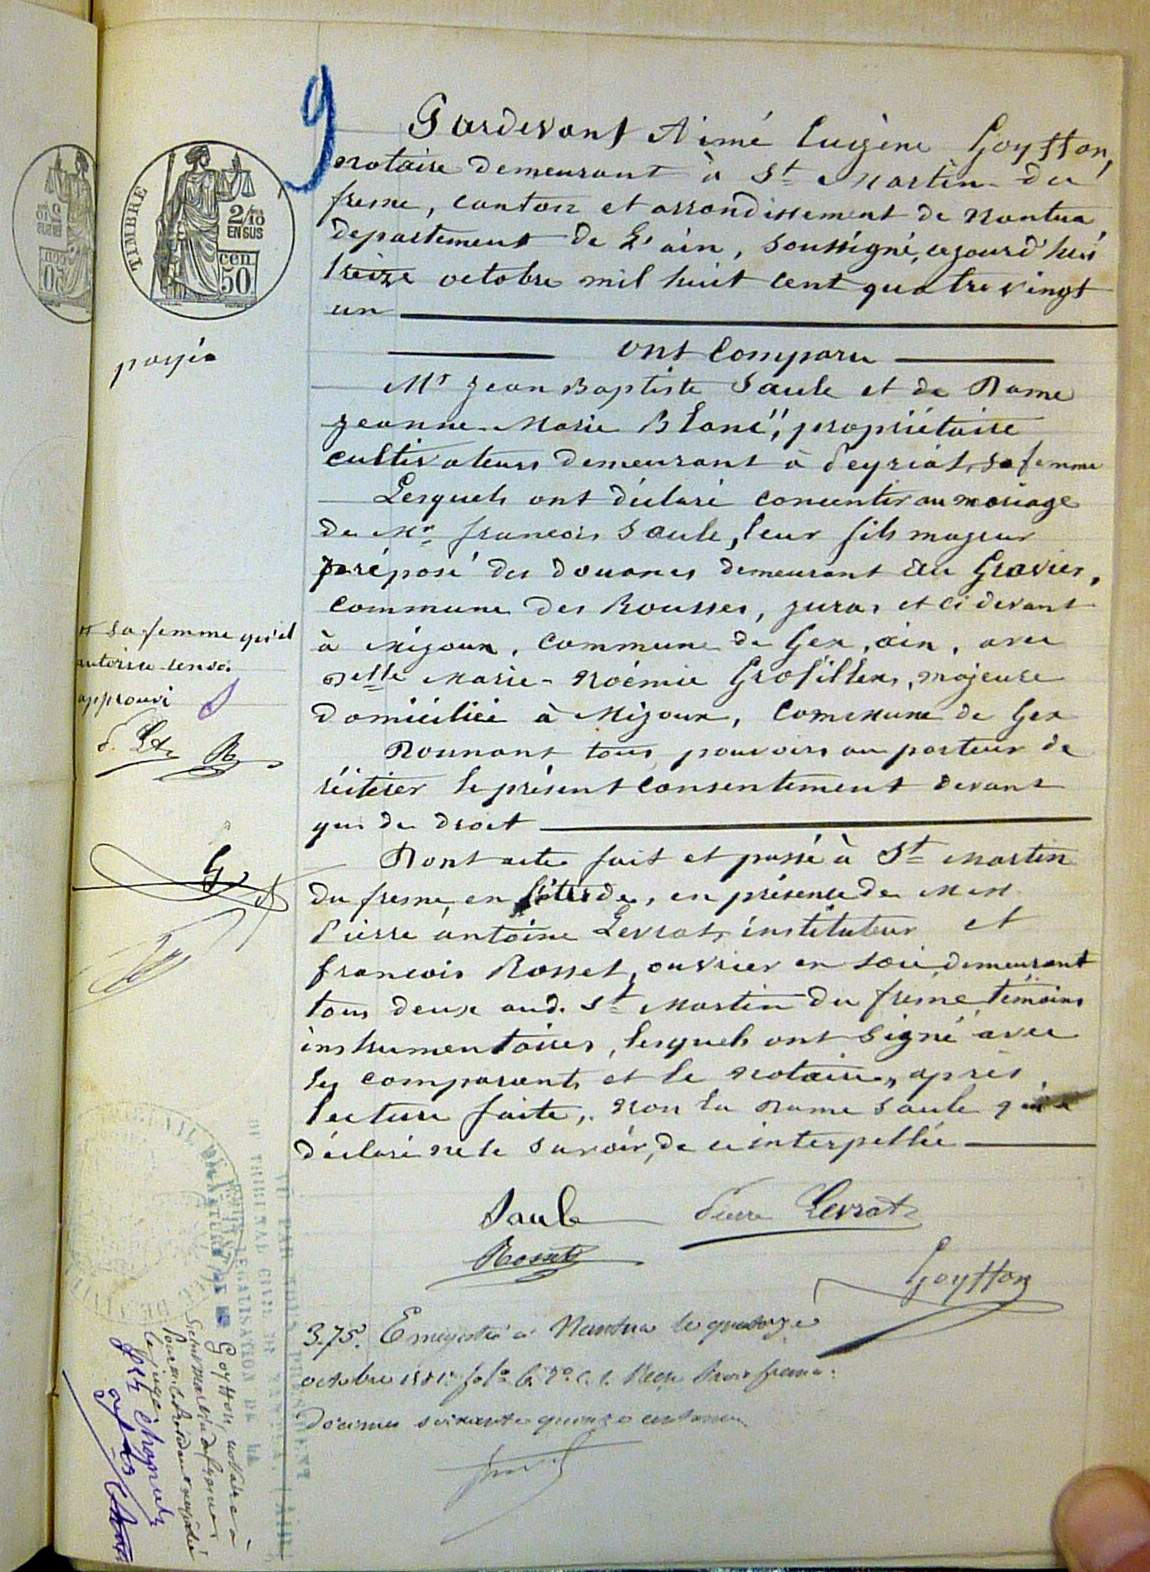 9
TIMBRE
2/10
EN SUS
50
CEN
payé
Pardevant Aimé Eugène Goyffon,
notaire demeurant à St Martin du
fresne, canton et arrondissement de Nantua,
departement de L'ain, soussigné, cejourd'hui
treize octobre mil huit cent quatre vingt
un
ont Comparu
Mr Jean Baptiste Saule et de Dame
Jeanne Marie Blanc, propriétaire
cultivateurs demeurant à Peyriat, sa femme
Lesquels ont déclaré consentir au mariage
de Mr francois Saule, leur fils majeur
préposé des douanes demeurant au Gravier,
commune des Rousses, Jura, et ci devant
à Mijoux, commune de Gex, ain, avec
Delle Marie Noémie Grosfillex, majeure
domiciliée à Mijoux, commune de Gex
Donnant tous pouvoirs au porteur de
réitérer le présent consentement devant
qui de droit
Dont acte fait et passé à St Martin
du fresne, en l'étude, en présence de MM
Pierre antoine Levrat, instituteur et
francois Rosset, ouvrier en soie, demeurant
tous deux aud. St Martin du fresne, témoins
instrumentaires, lesquels ont signé avec
les comparants et le notaire, après
lecture faite, non la Dame Saule qui a
déclaré ne le savoir, de ce interpellée
et sa femme qu'il
autorise
approuvé
Saule
Pierre Levrat
Rosset
Goyffon
3.75. Enregistré à Nantua le quatorze
octobre 1881. fo
décimes soixante quinze centimes
VU PAR NOUS PRÉSIDENT
DU TRIBUNAL CIVIL DE NANTUA (AIN)
LEGALISATION DE LA
SIGNATURE DE M
Goyffon, notaire à
Saint Martin du fresne